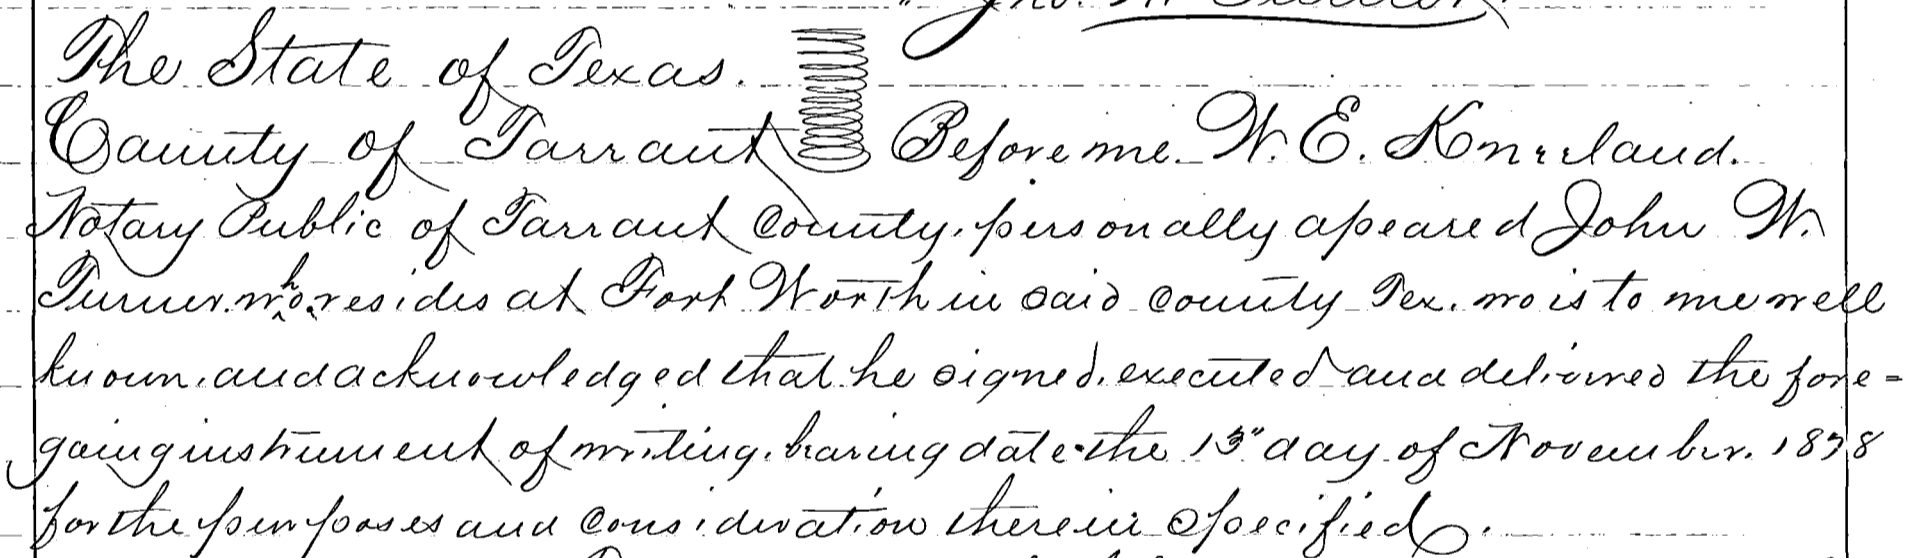 The State of Texas.
County of Tarrant Before me. W. E. Kneeland.
Notary Public of Tarrant County, personally apeared John W.
Turner. who resides at Fort Worth in said county Tex. wo is to me well
known, and acknowledged that he signed, executed and delivered the fore=
going instrument of writing, bearing date the 13" day of November. 1878
for the purposes and consideration therein specified.